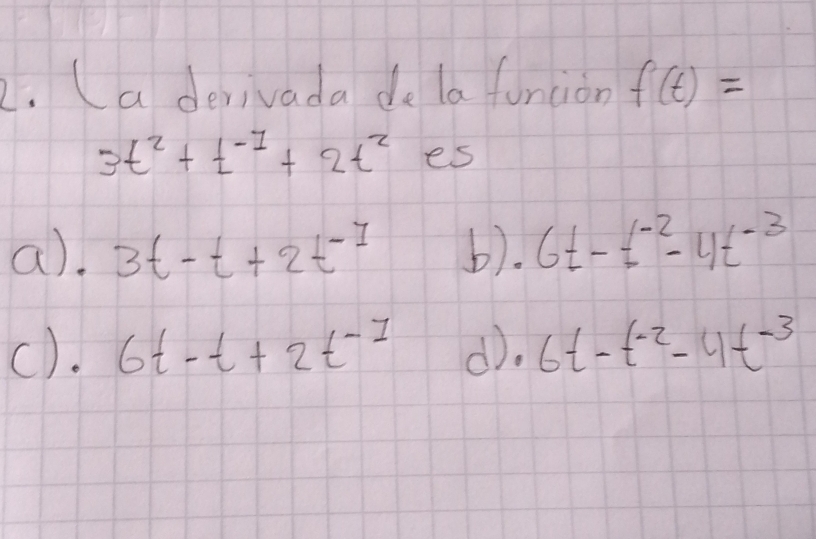 2. La derivada de la función f(t) =
3t² + t⁻¹ + 2t² es
a). 3t - t + 2t⁻¹ b). 6t - t⁻² - 4t⁻³
c). 6t - t + 2t⁻¹ d). 6t - t⁻² - 4t⁻³